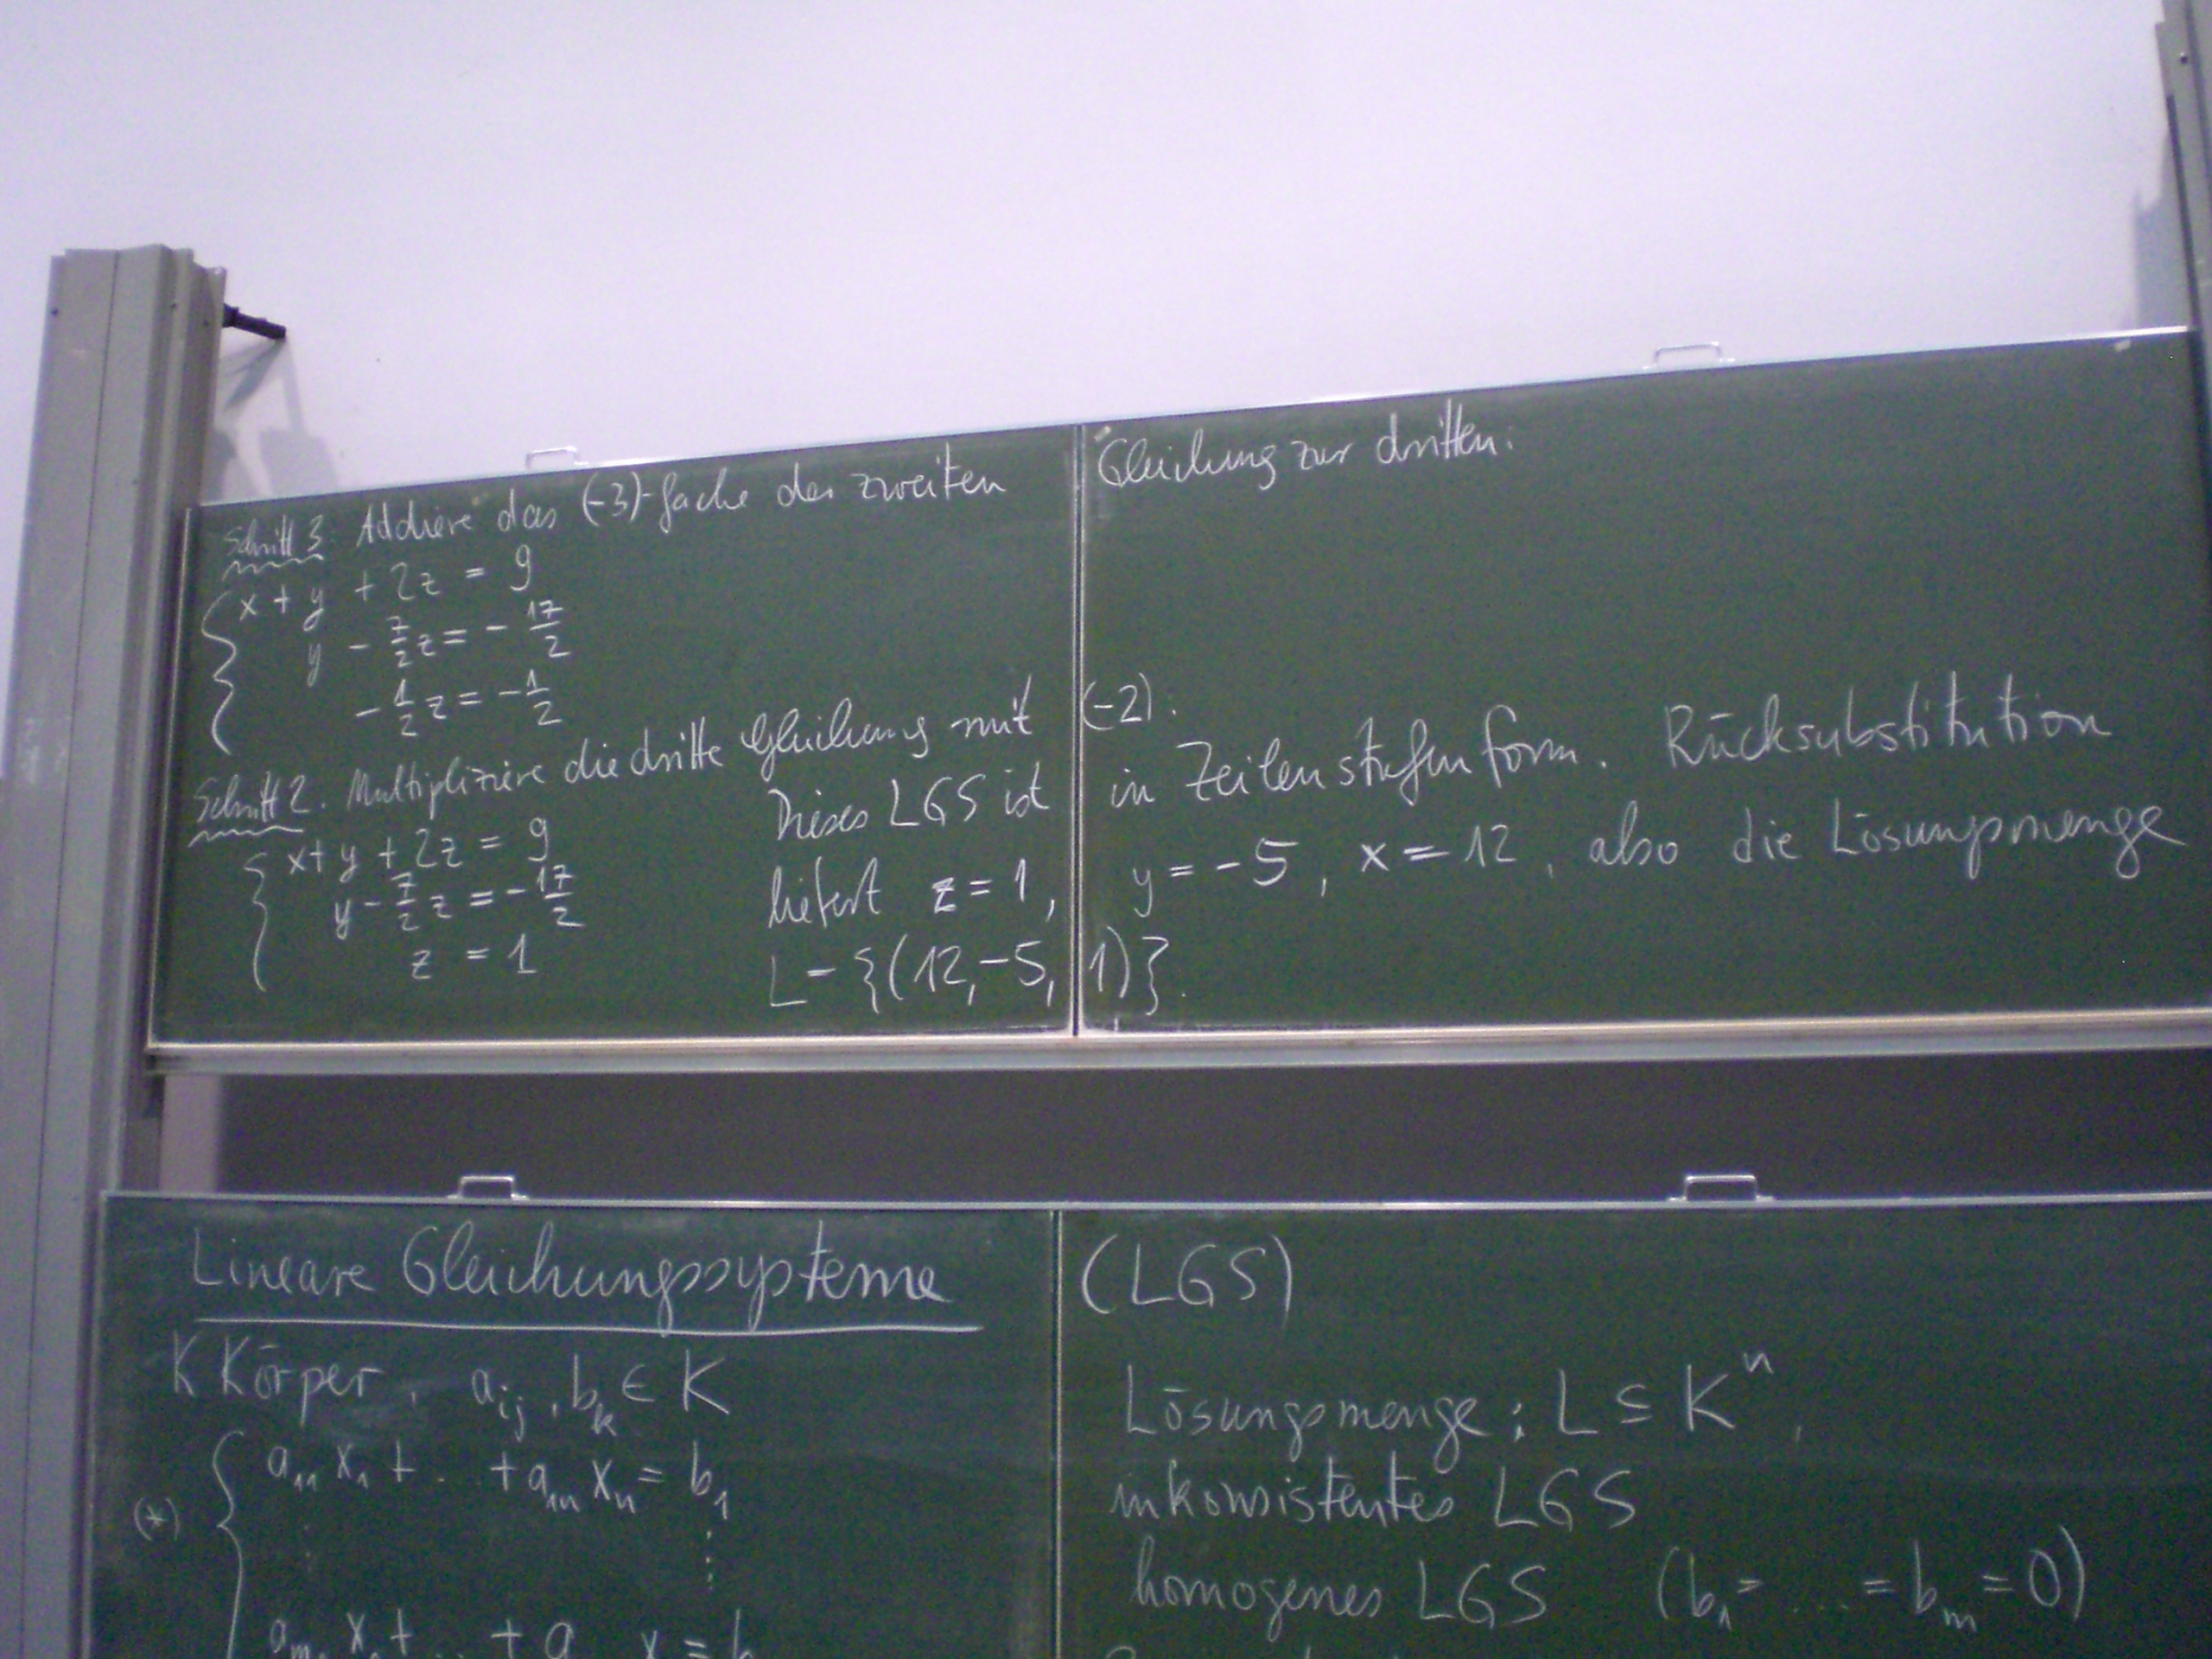 Schritt 3: Addiere das (-3)-fache der zweiten Gleichung zur dritten:
x + y + 2z = 9
y - 7/2 z = - 17/2
- 1/2 z = - 1/2
Schritt 2. Multipliziere die dritte Gleichung mit (-2).
x + y + 2z = 9
y - 7/2 z = - 17/2
z = 1
Dieses LGS ist in Zeilenstufenform. Rücksubstitution
liefert z = 1, y = -5, x = 12, also die Lösungsmenge
L = {(12, -5, 1)}.
Lineare Gleichungssysteme (LGS)
K Körper, a_ij, b_k ∈ K
(*) a_11 x_1 + .. + a_1n x_n = b_1
⋮ ⋮
Lösungsmenge: L ⊆ K^n,
inkonsistentes LGS
homogenes LGS (b_1 = ... = b_m = 0)